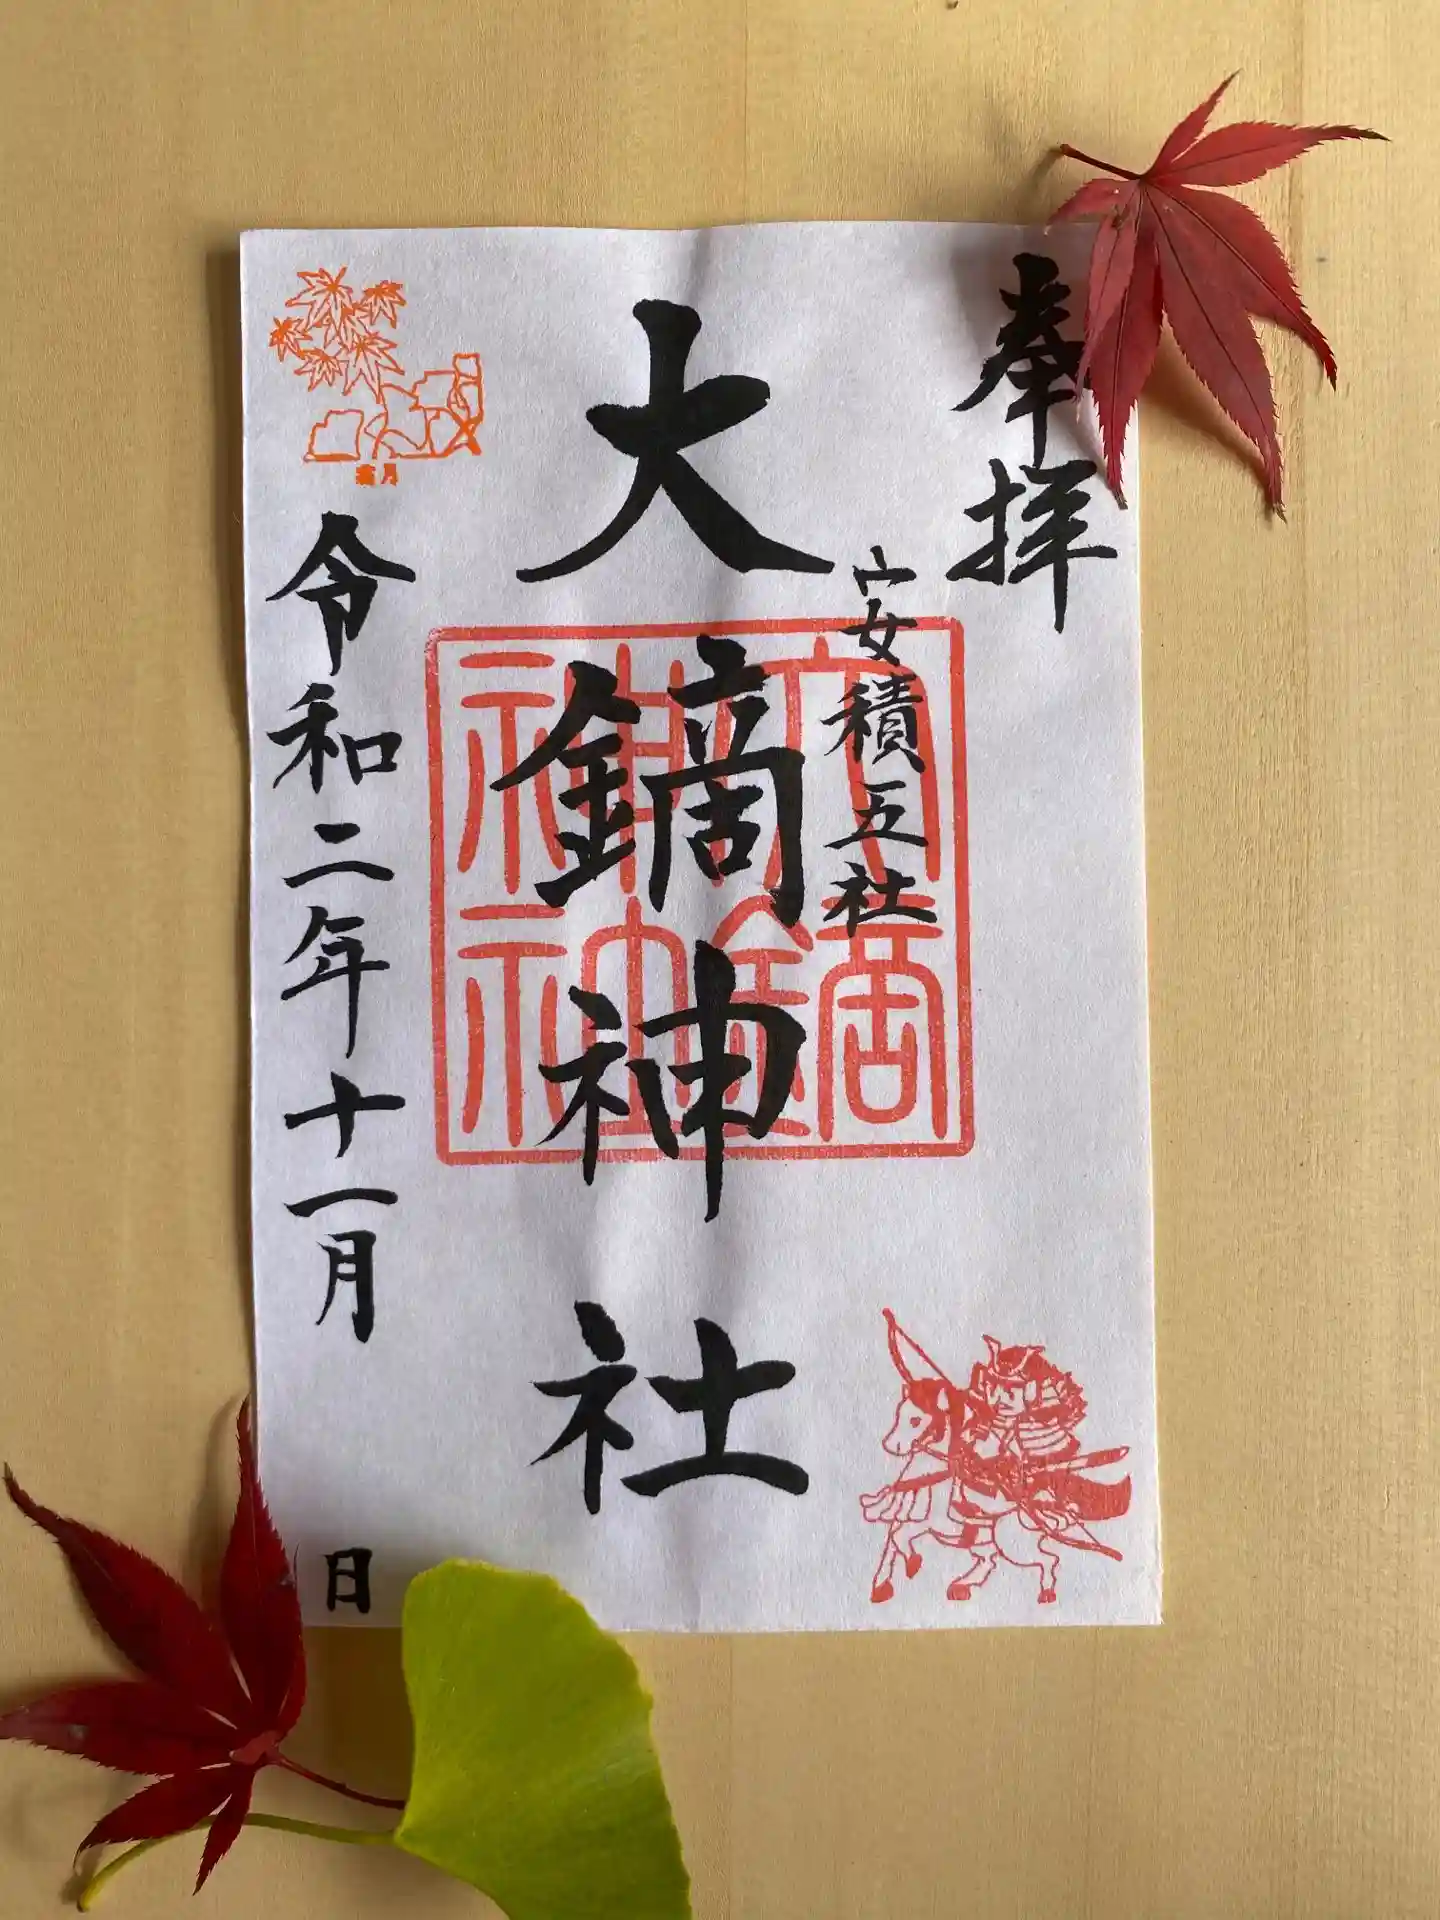 奉拝
安積五社
大鏑神社
大鏑神社
霜月
令和二年十一月 日